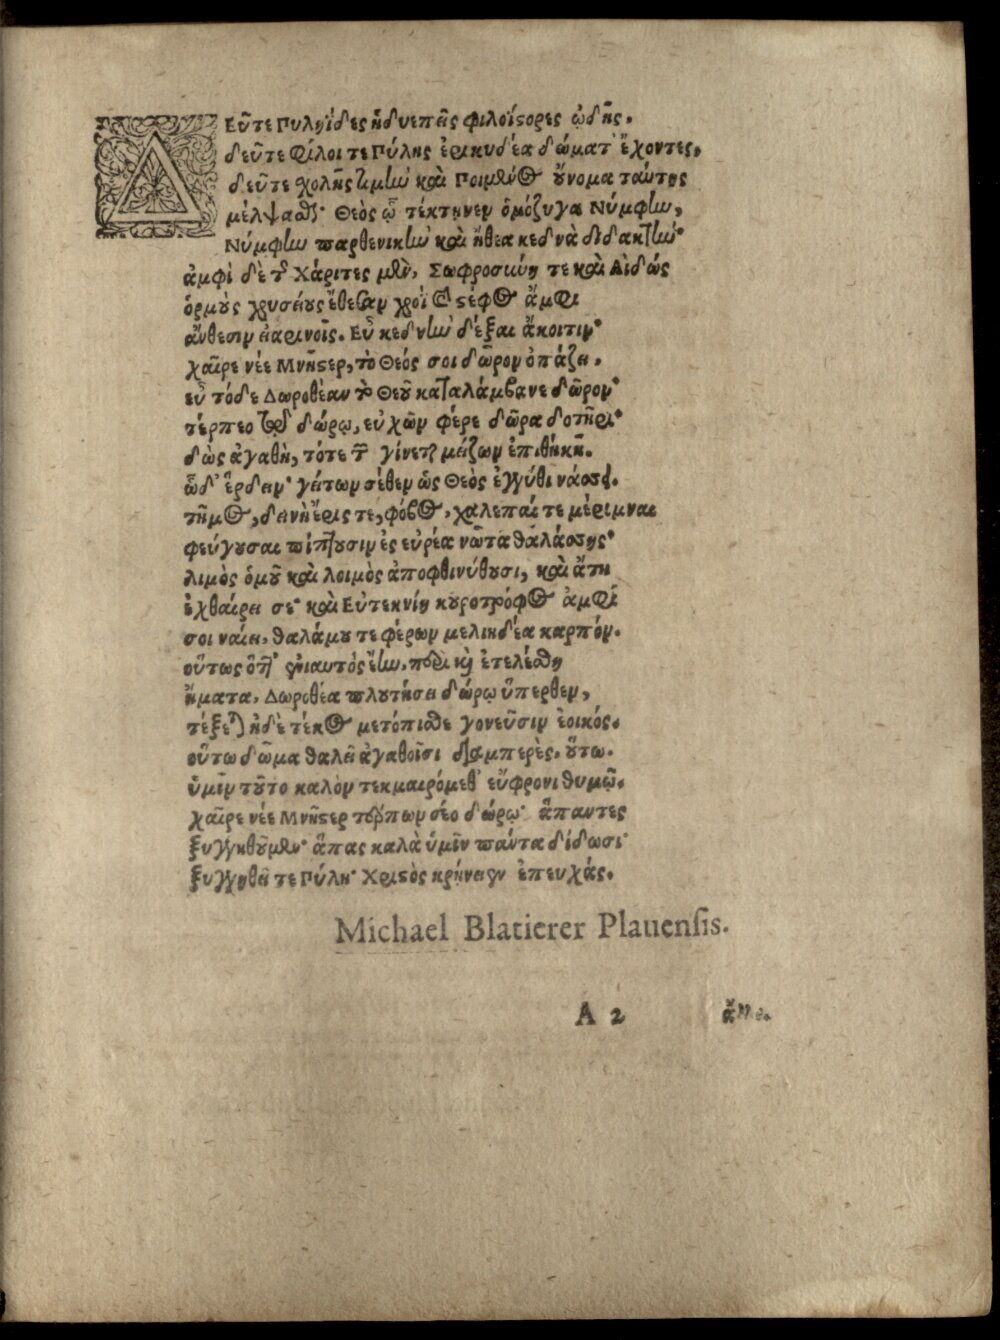 ΔΕῦτε Πυληΐδες ἡδυεπεῖς φιλοΐστορες ᾠδῆς.
δεῦτε Φίλοι τε Πύλης ἐρικυδέα δώματ' ἔχοντες,
δεῦτε χολῆς καὶ Ποιμένος οὔνομα ταύτης
μέλψασθε· Θεὸς ᾧ τέκτηνεν ὁμόζυγα Νύμφην,
Νύμφην παρθενικὴν καὶ ἤθεα κεδνὰ διδακτὴν·
ἀμφὶ δὲ τοῦ Χάριτες μὲν, Σωφροσύνη τε καὶ Αἰδώς
ὅρμους χρυσείους ἔθεσαν χροῒ στέφος ἄμφι
ἄνθεσιν εἰαρινοῖς. Εὖ κεδνὴν δέξαι ἄκοιτιν·
χαῖρε νέε Μνῆστερ, τὸ Θεός σοι δῶρον ὀπάζει.
εὖ τόδε Δωροθέαν τὸ Θεοῦ καταλάμβανε δῶρον·
τέρπεο τῷδε δώρῳ, εὐχῶν φέρε δῶρα δοτῆρι·
δὼς ἀγαθὴ, τότε γίνεται μείζων ἐπιθήκη.
ὧδ' ἔρδειν· γείτων σέθεν ὡς Θεὸς ἐγγύθι νάσσει.
τῆμος, δεινὴ ἔρις τε, φόβος, χαλεπαί τε μέριμναι
φεύγουσαι πίπτουσιν ἐς εὐρέα νῶτα θαλάσσης·
λιμὸς ὁμοῦ καὶ λοιμὸς ἀποφθινύθουσι, καὶ ἄτη
ἐχθαίρει σε· καὶ Εὐτεκνίη κουροτρόφος ἀμφί
σοι ναίει, θαλάμου τε φέρων μελιηδέα καρπόν.
οὕτως ὅτε ἐνιαυτὸς ἔην, περὶ καὶ ἐτελέσθη
ἤματα, Δωροθέα πλουτήσει δώρῳ ὕπερθεν,
τέξεται ἠδὲ τέκος μετόπισθε γονεῦσιν ἐοικός.
οὕτω δῶμα θαλεῖ ἀγαθοῖσι διαμπερὲς, οὕτω.
ὑμῖν τοῦτο καλὸν τεκμαιρόμεθ' εὔφρονι θυμῷ.
χαῖρε νέε Μνῆστερ τέρπων σέο δώρῳ· ἅπαντες
ξυγγηθοῦμεν· ἅπας καλὰ ὑμῖν πάντα δίδωσι·
ξυγγηθεῖ τε Πύλη· Χριστὸς κρήνειεν ἐπευχάς.
Michael Blatierer Plauensis.
A 2